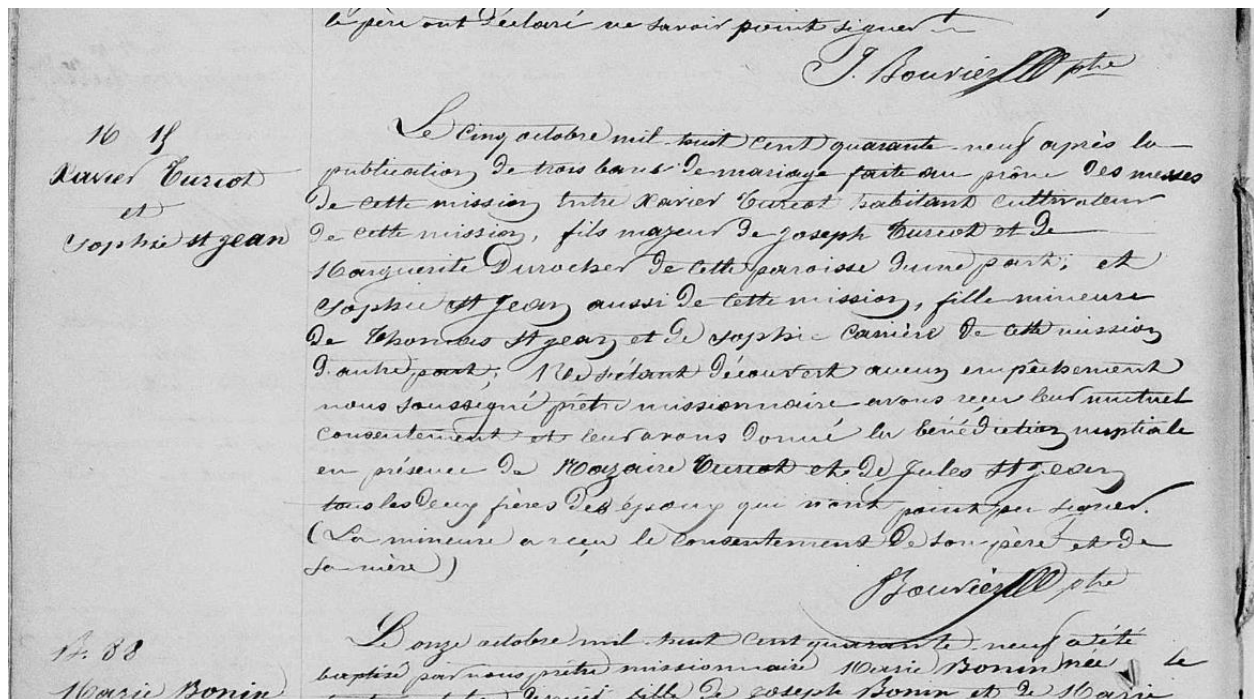 le père ont déclaré ne savoir point signer
J. Bouvier ptre
M 15
Xavier Turcot
et
Sophie St Jean
Le cinq octobre mil huit cent quarante-neuf après la
publication de trois bans de mariage faite au prône des messes
de cette mission entre Xavier Turcot habitant cultivateur
de cette mission, fils majeur de Joseph Turcot et de
Marguerite Durocher de cette paroisse d'une part; et
Sophie St Jean aussi de cette mission, fille mineure
de Thomas St Jean et de Sophie Carrière de cette mission
d'autre part; Ne s'étant découvert aucun empêchement
nous soussigné prêtre missionnaire avons reçu leur mutuel
consentement et leur avons donné la bénédiction nuptiale
en présence de Nazaire Turcot et de Jules St Jean
tous les deux frères des époux qui n'ont point pu signer.
(La mineure a reçu le consentement de son père et de
sa mère)
Bouvier ptre
B. 88
Marie Bonin
Le onze octobre mil huit cent quarante-neuf a été
baptisé par nous prêtre missionnaire Marie Bonin née le
dernier fille de Joseph Bonin et de Marie